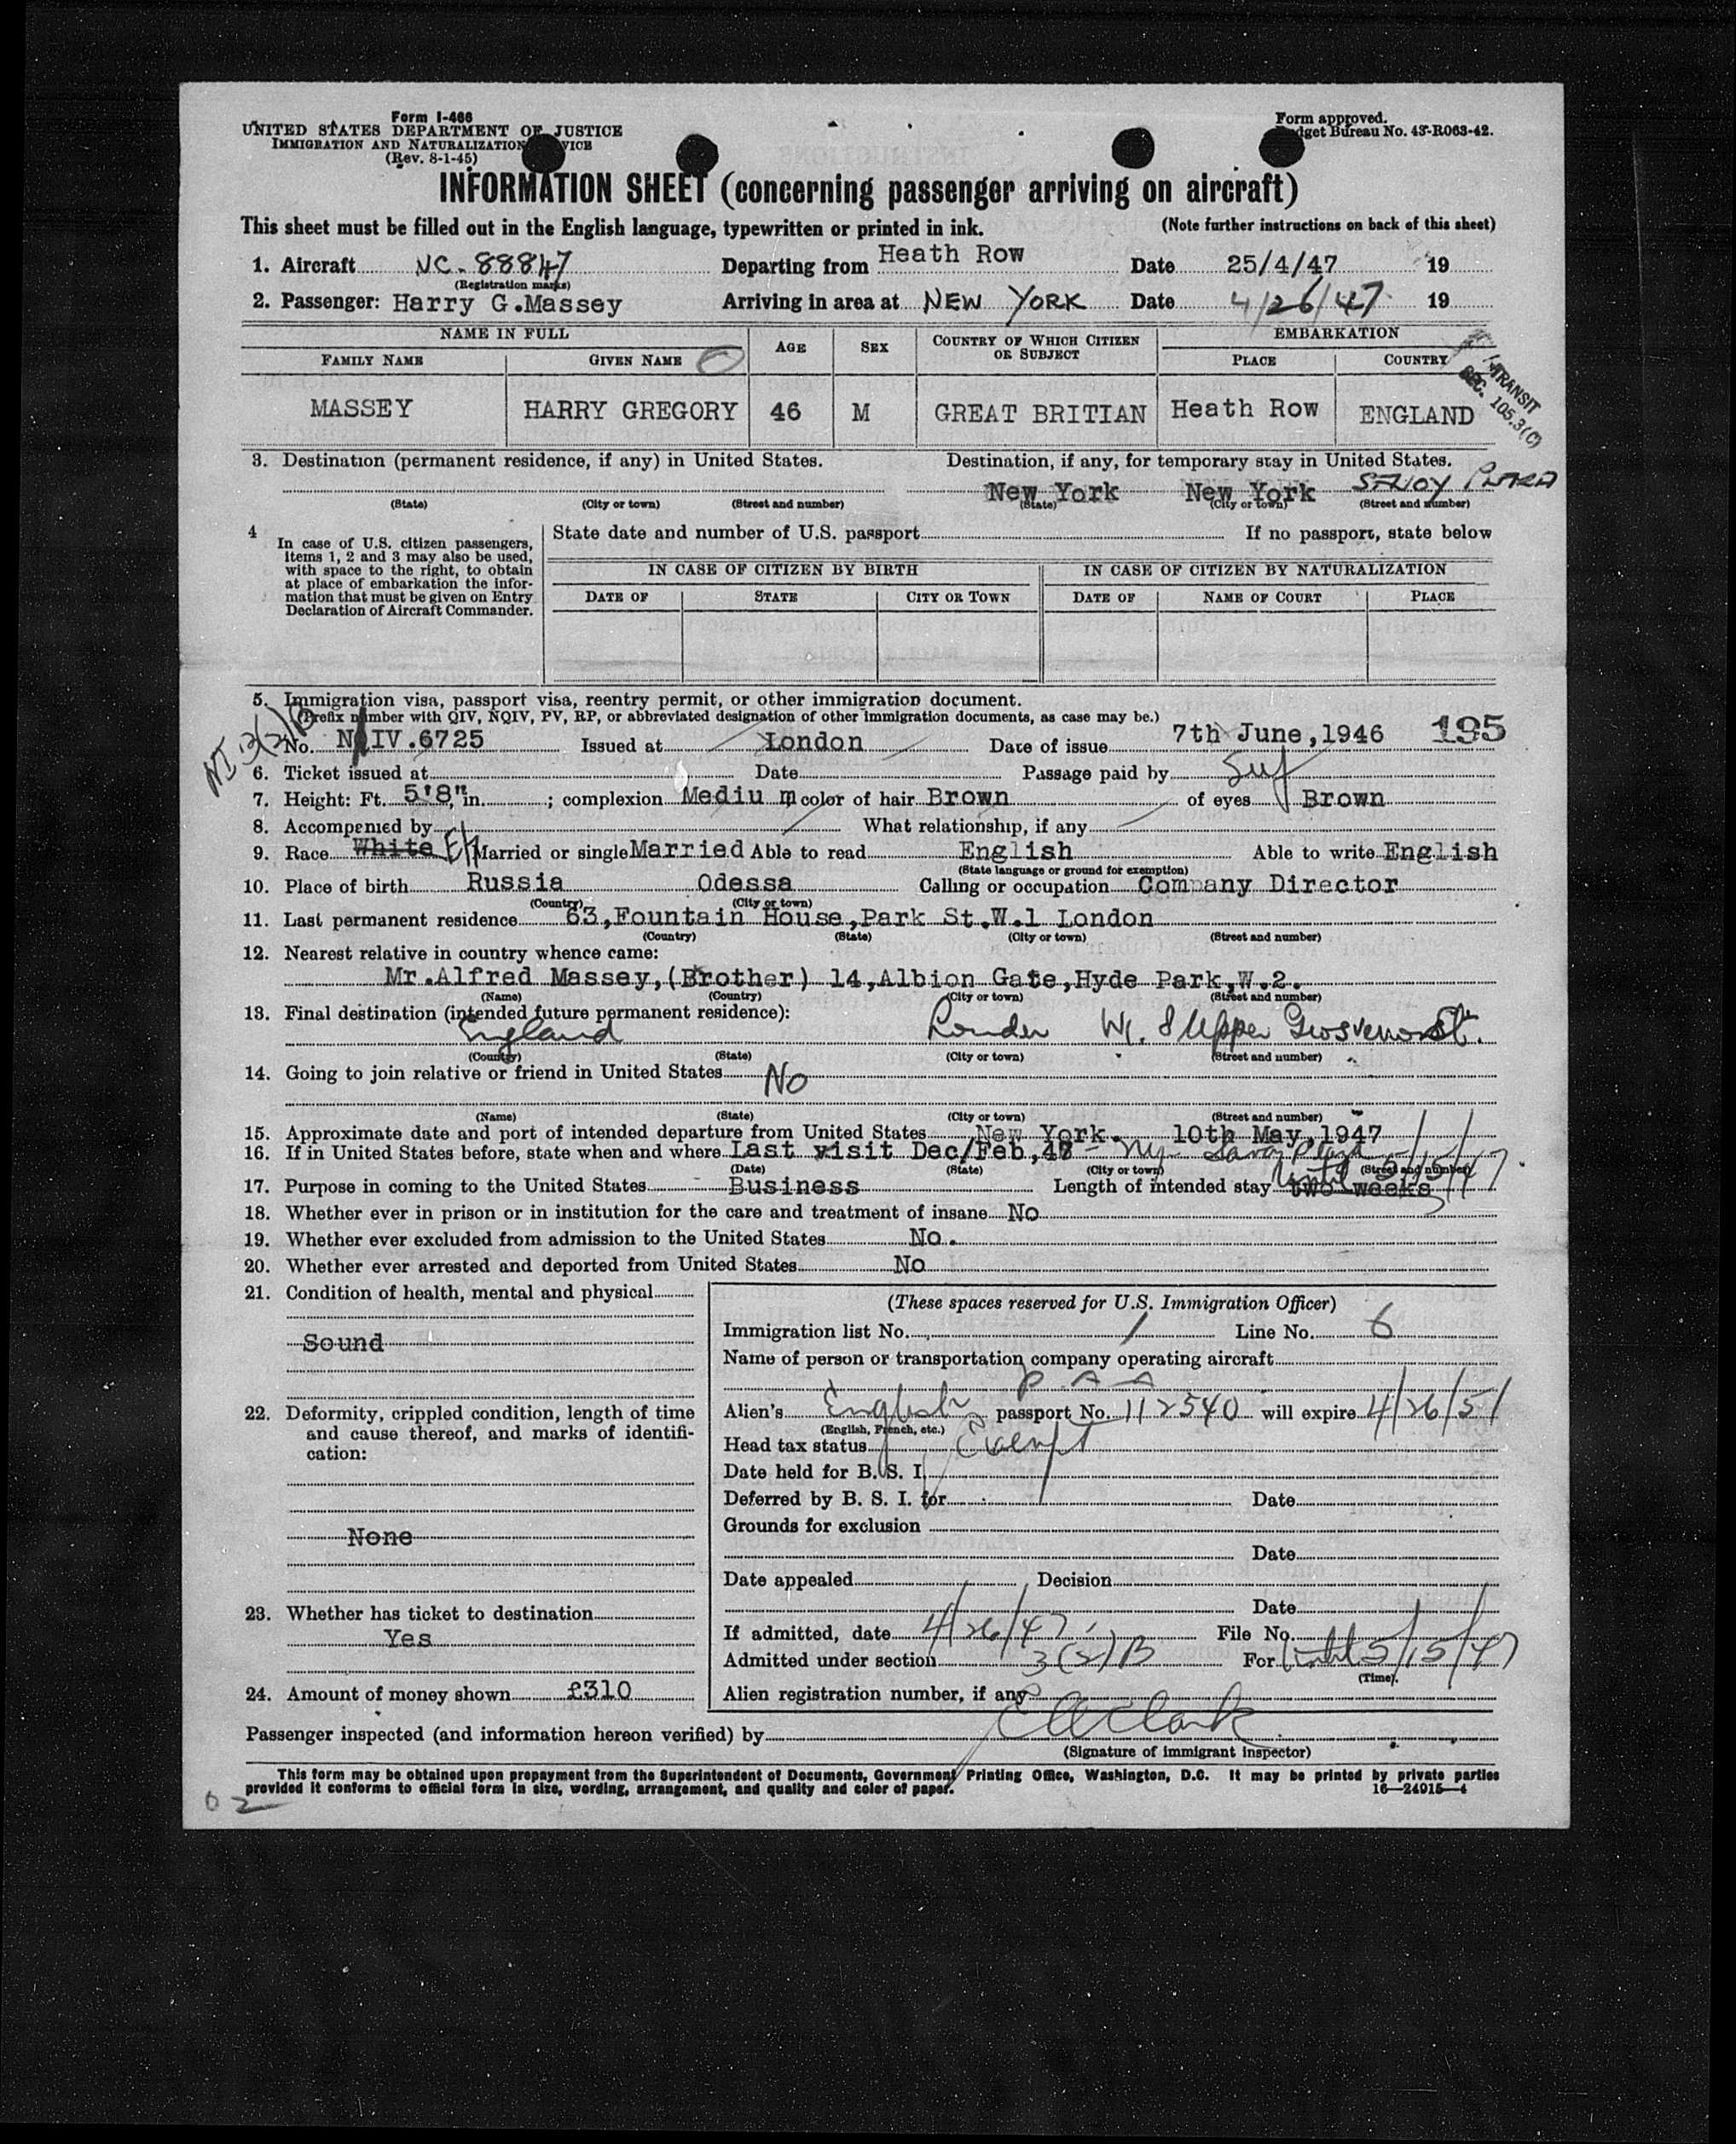 Form I-466
UNITED STATES DEPARTMENT OF JUSTICE
IMMIGRATION AND NATURALIZATION
(Rev. 8-1-45)
Form approved.
Budget Bureau No. 43-R063-42.
INFORMATION SHEET (concerning passenger arriving on aircraft)
This sheet must be filled out in the English language, typewritten or printed in ink. (Note further instructions on back of this sheet)
1. Aircraft NC-88847 Departing from Heath Row Date 25/4/47 19
(Registration marks)
2. Passenger: Harry G.Massey Arriving in area at NEW YORK Date 4/26/47 19
NAME IN FULL AGE SEX COUNTRY OF WHICH CITIZEN OR SUBJECT EMBARKATION
FAMILY NAME GIVEN NAME PLACE COUNTRY
MASSEY HARRY GREGORY 46 M GREAT BRITIAN Heath Row ENGLAND
TRANSIT
SEC. 105.3(C)
3. Destination (permanent residence, if any) in United States. Destination, if any, for temporary stay in United States.
New York New York SAVOY PLAZA
(State) (City or town) (Street and number) (State) (City or town) (Street and number)
4 In case of U.S. citizen passengers, items 1, 2 and 3 may also be used, with space to the right, to obtain at place of embarkation the information that must be given on Entry Declaration of Aircraft Commander.
State date and number of U.S. passport If no passport, state below
IN CASE OF CITIZEN BY BIRTH IN CASE OF CITIZEN BY NATURALIZATION
DATE OF STATE CITY OR TOWN DATE OF NAME OF COURT PLACE
5. Immigration visa, passport visa, reentry permit, or other immigration document.
(Prefix number with QIV, NQIV, PV, RP, or abbreviated designation of other immigration documents, as case may be.)
No. NIV.6725 Issued at London Date of issue 7th June,1946 195
6. Ticket issued at Date Passage paid by Self
7. Height: Ft. 5'8" in. ; complexion Medium color of hair Brown of eyes Brown
8. Accompanied by What relationship, if any
9. Race White Married or single Married Able to read English Able to write English
(State language or ground for exemption)
10. Place of birth Russia Odessa Calling or occupation Company Director
(Country) (City or town)
11. Last permanent residence 63,Fountain House,Park St.W.1 London
(Country) (State) (City or town) (Street and number)
12. Nearest relative in country whence came:
Mr.Alfred Massey,(Brother) 14,Albion Gate,Hyde Park,W.2.
(Name) (Country) (City or town) (Street and number)
13. Final destination (intended future permanent residence):
England London W1. 8 Upper Grosvenor St.
(Country) (State) (City or town) (Street and number)
14. Going to join relative or friend in United States No
(Name) (State) (City or town) (Street and number)
15. Approximate date and port of intended departure from United States New York. 10th May,1947
16. If in United States before, state when and where Last visit Dec/Feb, - NY - Savoy Plaza
(Date) (State) (City or town) (Street and number)
17. Purpose in coming to the United States Business Length of intended stay two weeks Until 5/15/47
18. Whether ever in prison or in institution for the care and treatment of insane No
19. Whether ever excluded from admission to the United States No.
20. Whether ever arrested and deported from United States No
21. Condition of health, mental and physical
Sound
22. Deformity, crippled condition, length of time and cause thereof, and marks of identification:
None
23. Whether has ticket to destination
Yes
24. Amount of money shown £310
(These spaces reserved for U.S. Immigration Officer)
Immigration list No. 1 Line No. 6
Name of person or transportation company operating aircraft
P A A
Alien's English passport No. 112540 will expire 4/26/51
(English, French, etc.)
Head tax status Exempt
Date held for B. S. I.
Deferred by B. S. I. for Date
Grounds for exclusion
Date
Date appealed Decision
Date
If admitted, date 4/26/47 File No.
Admitted under section 3(2)B For Until 5/15/47
(Time).
Alien registration number, if any
Passenger inspected (and information hereon verified) by C A Clark
(Signature of immigrant inspector)
This form may be obtained upon prepayment from the Superintendent of Documents, Government Printing Office, Washington, D.C. It may be printed by private parties
provided it conforms to official form in size, wording, arrangement, and quality and color of paper. 16—24015-4
02